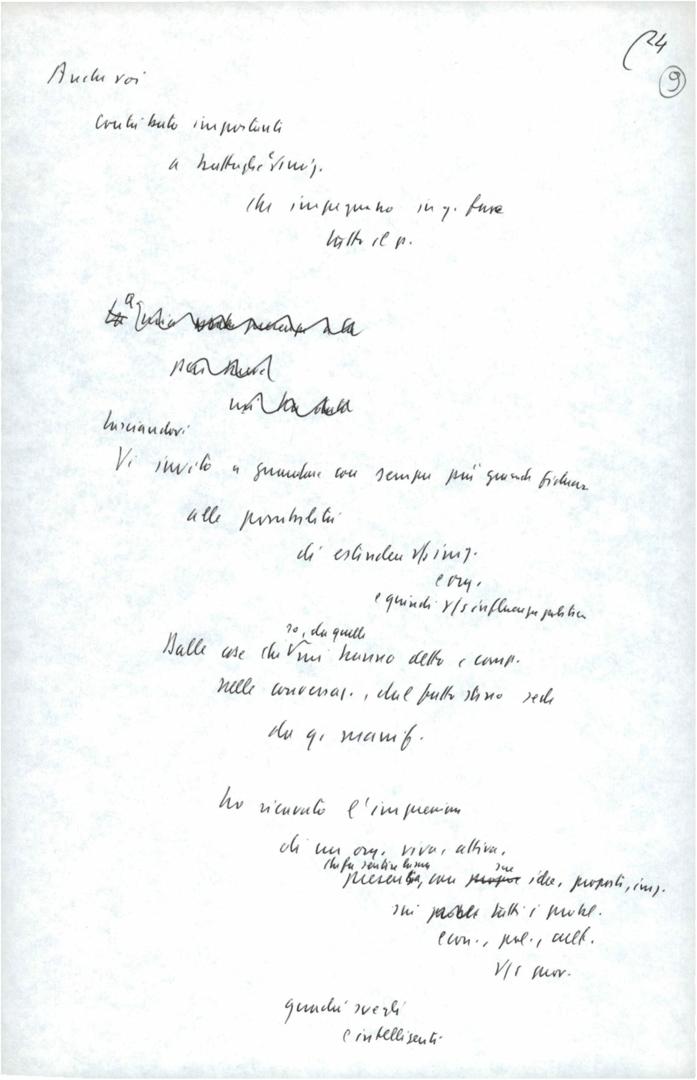 24
9
Anche voi
contributo importante
a battaglie
che impegnano in q. fase
tutto il p.
lasciandovi
Vi invito a guardare con sempre più grande fiducia
alle possibilità
di estendere v/s imp.
e org.
e quindi v/s influenza politica
so, da quelle
Dalle cose che mi hanno detto i comp.
nelle conversaz., dal fatto stesso
da q. manif.
ho ricavato l'impressione
di un org. viva, attiva,
che fa sentire la sua
presenza, con sue idee, proposte, imp.
su tutti i probl.
econ., pol., cult.
v/s
quadri svegli
e intelligenti